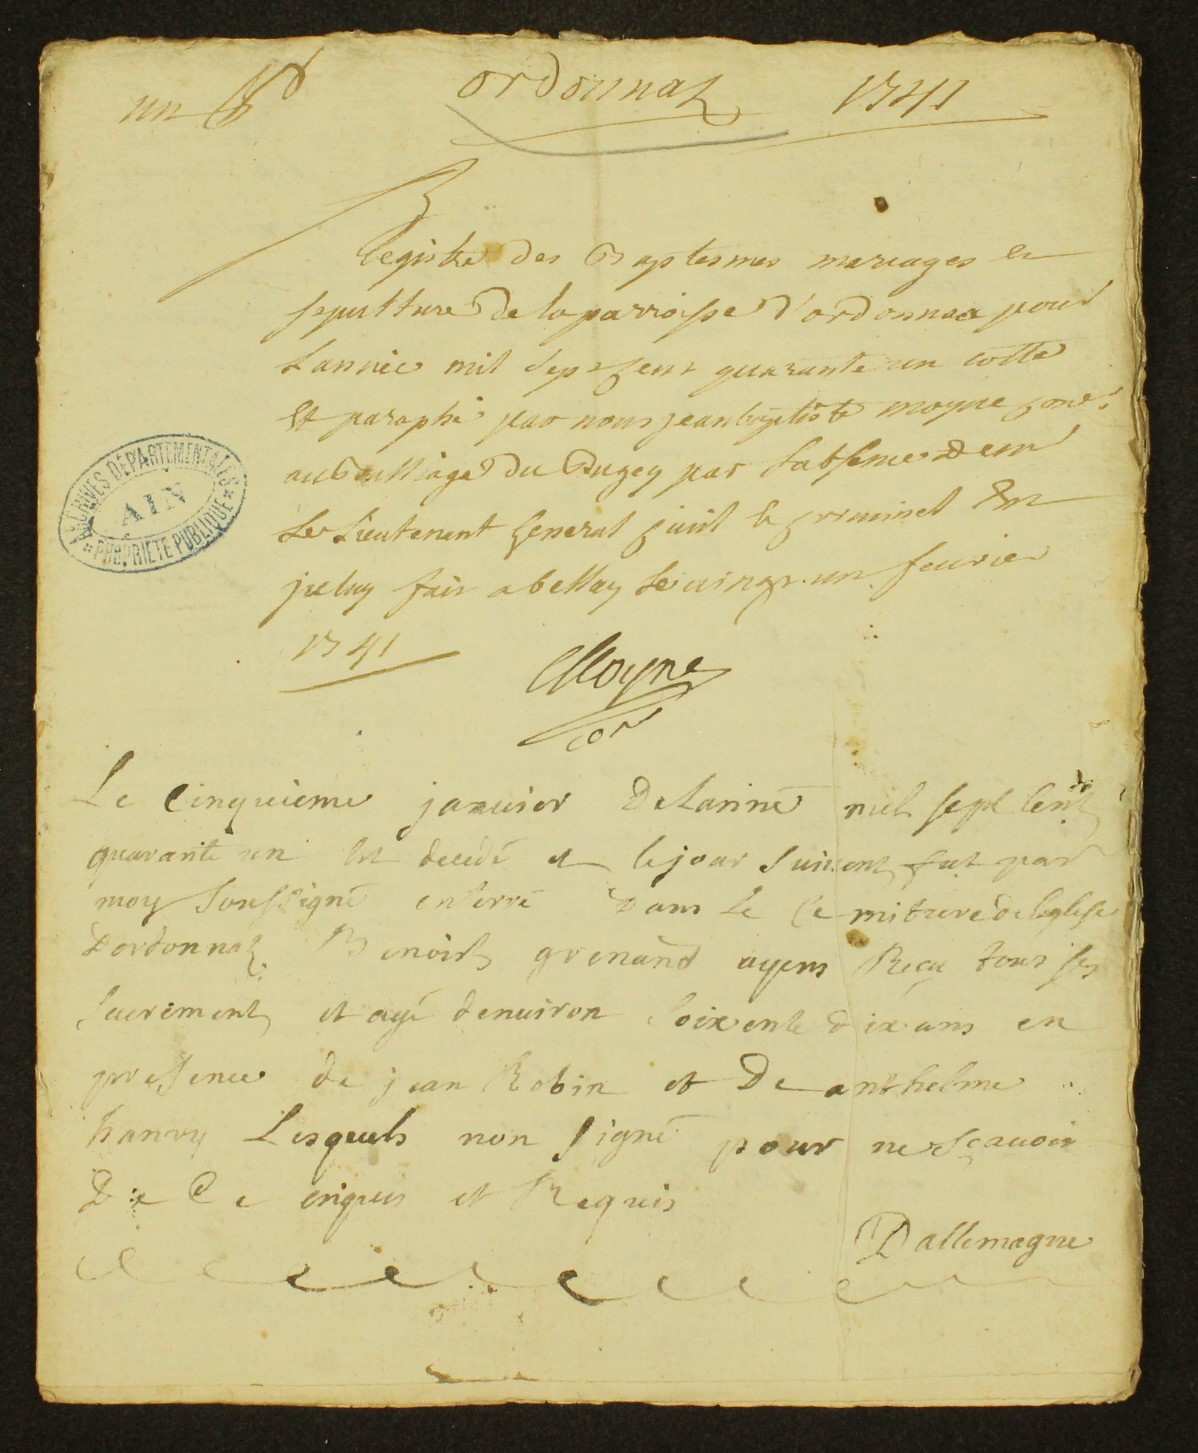 un
ordonnaz
1741
Registre des Baptesmes mariages et
sepulture de la parroisse d'ordonnaz pour
L'année mil sept cent quarante un cotté
Et paraphé par nous jean baptiste moyne
au Bailliage du Bugey par l'absence de
le Lieutenant general civil et criminel
jceluy fait a bellay le vingt un feurier
1741
Moyne
ARCHIVES DÉPARTEMENTALES
AIN
PROPRIÉTÉ PUBLIQUE
Le cinquieme januier de Lanné mil sept cent
quarante un est decedé et le jour suivent fut par
moy soussigné enterré dans le cemitiere de leglise
Dordonnaz Benoist grenand ayens Reçu tous ses
sacrement et agé denuiron soixente dix ans en
presence de jean Robin et De anthelme
hanry Lesquels non signé pour ne scauoir
De Ce enquis et Requis
Dallemagne